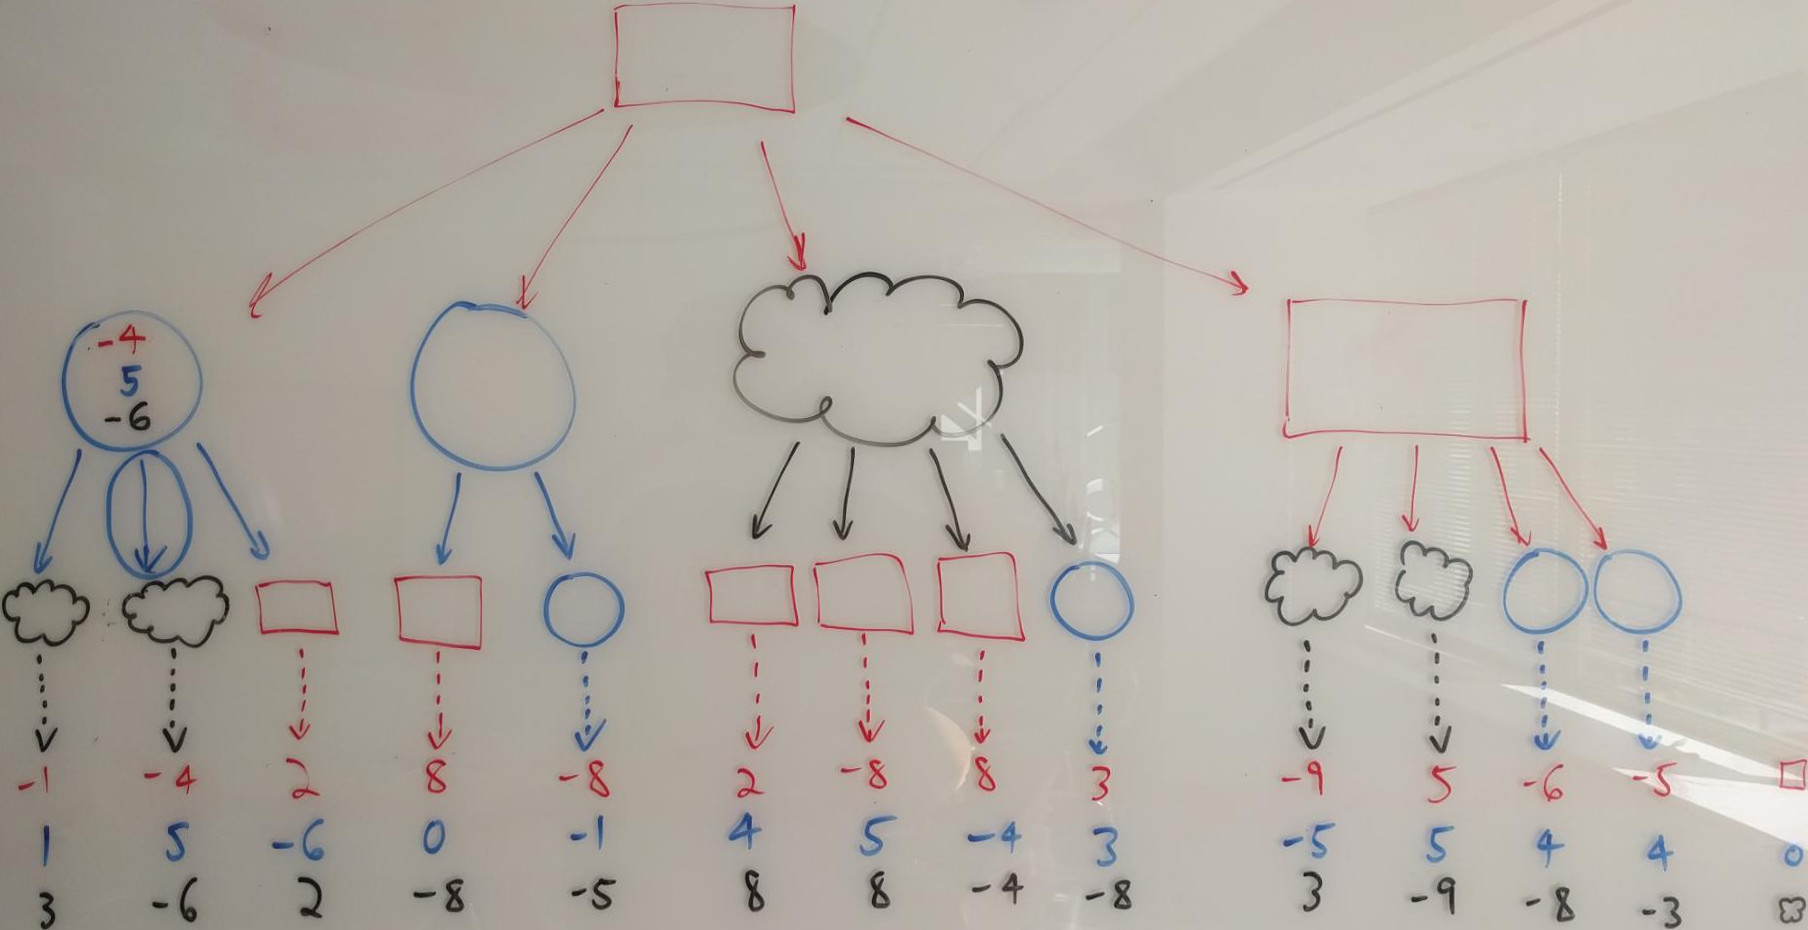 -4
5
-6
-1 -4 2 8 -8 2 -8 8 3 -9 5 -6 -5
1 5 -6 0 -1 4 5 -4 3 -5 5 4 4
3 -6 2 -8 -5 8 8 -4 -8 3 -9 -8 -3